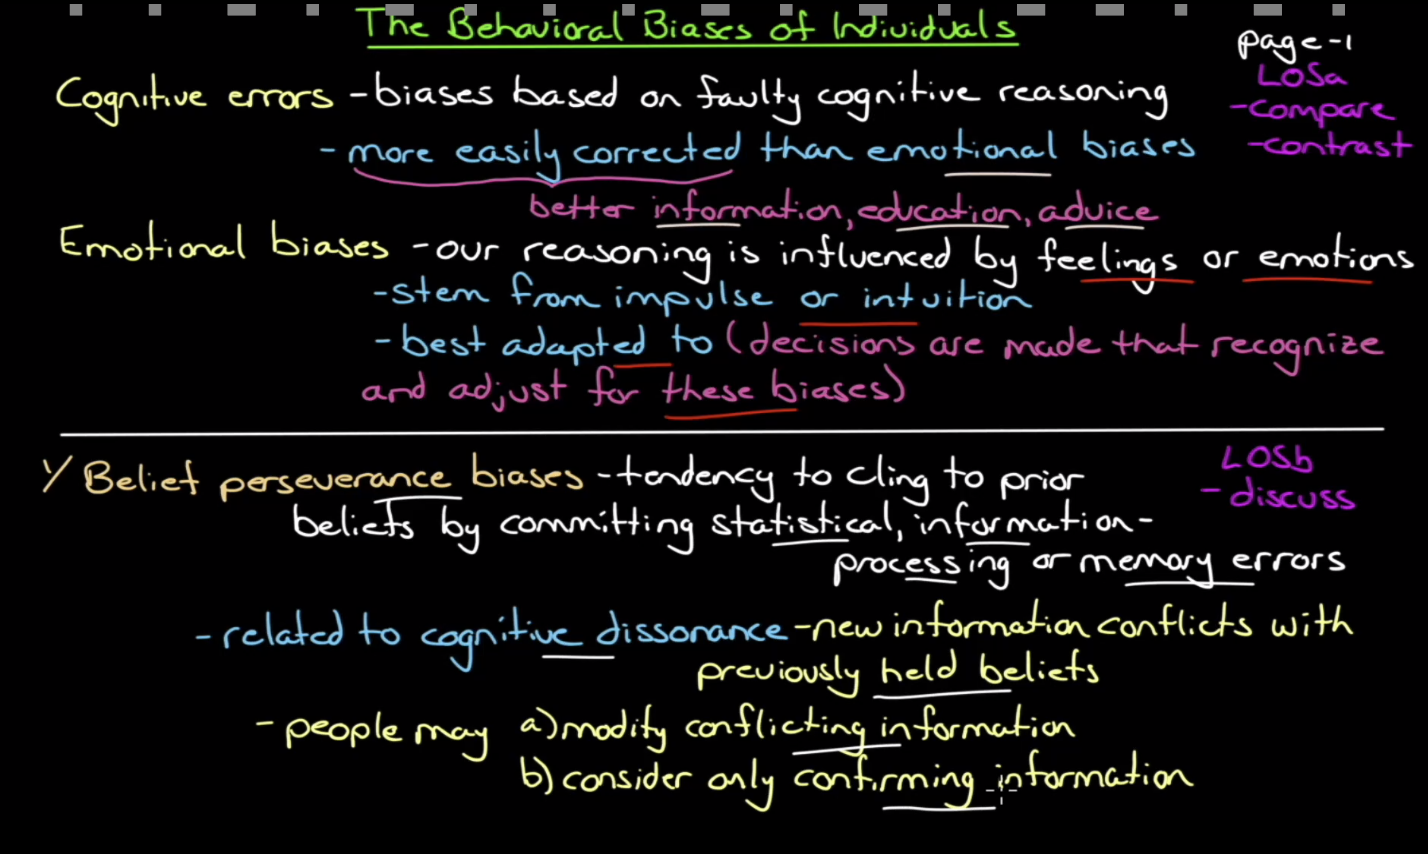 The Behavioral Biases of Individuals
page-1
LOSa
-compare
-contrast
Cognitive errors -biases based on faulty cognitive reasoning
- more easily corrected than emotional biases
better information, education, advice
Emotional biases -our reasoning is influenced by feelings or emotions
-stem from impulse or intuition
-best adapted to (decisions are made that recognize
and adjust for these biases)
LOSb
- discuss
1/ Belief perseverance biases -tendency to cling to prior
beliefs by committing statistical, information-
processing or memory errors
-related to cognitive dissonance -new information conflicts with
previously held beliefs
- people may a) modify conflicting information
b) consider only confirming information